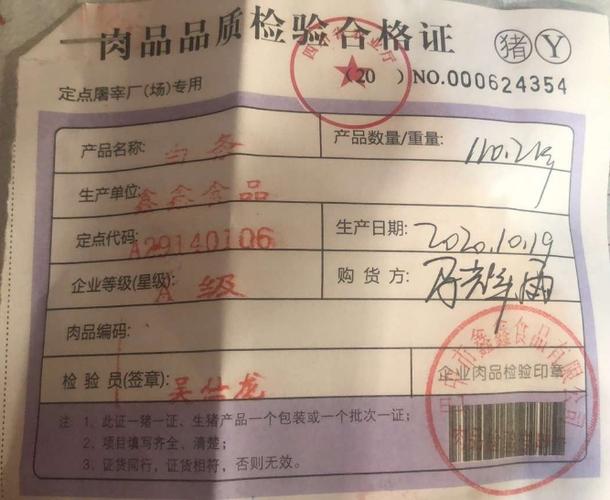 肉品品质检验合格证 猪 Y
定点屠宰厂(场)专用 (20 ) NO.000624354
产品名称: 白条 产品数量/重量: 110.2kg
生产单位: 鑫鑫食品
定点代码: A29140106 生产日期: 2020.10.19
企业等级(星级): A级 购货方:
肉品编码:
检验员(签章): 吴仕龙 企业肉品检验印章
市鑫鑫食品有限公司
注: 1、此证一猪一证、生猪产品一个包装或一个批次一证;
2、项目填写齐全、清楚;
3、证货同行，证货相符，否则无效。